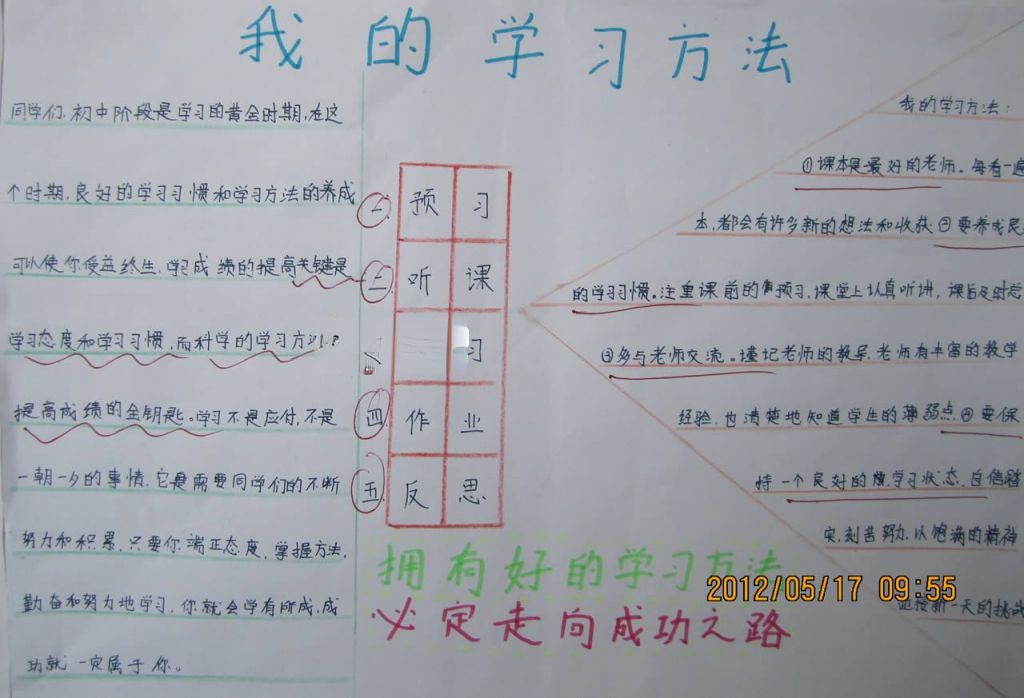 我的学习方法
同学们,初中阶段是学习的黄金时期,在这
个时期,良好的学习习惯和学习方法的养成
可以使你受益终生,学习成绩的提高关键是
学习态度和学习习惯,而科学的学习方
提高成绩的金钥匙。学习不是应付,不是
一朝一夕的事情,它是需要同学们的不断
努力和积累,只要你端正态度,掌握方法,
勤奋和努力地学习,你就会学有所成,成
功就一定属于你。
预习
二 听课
习
四 作业
五 反思
拥有好的学习方法
必定走向成功之路
我的学习方法:
①课本是最好的老师。每看一遍
本,都会有许多新的想法和收获②要养成良
的学习习惯。注重课前的预习,课堂上认真听讲,课后及时总
③多与老师交流。谨记老师的教导,老师有丰富的教学
经验,也清楚地知道学生的薄弱点④要保
持一个良好的学习状态,自信踏
实,刻苦努力,以饱满的精神
迎接新一天的挑战
2012/05/17 09:55